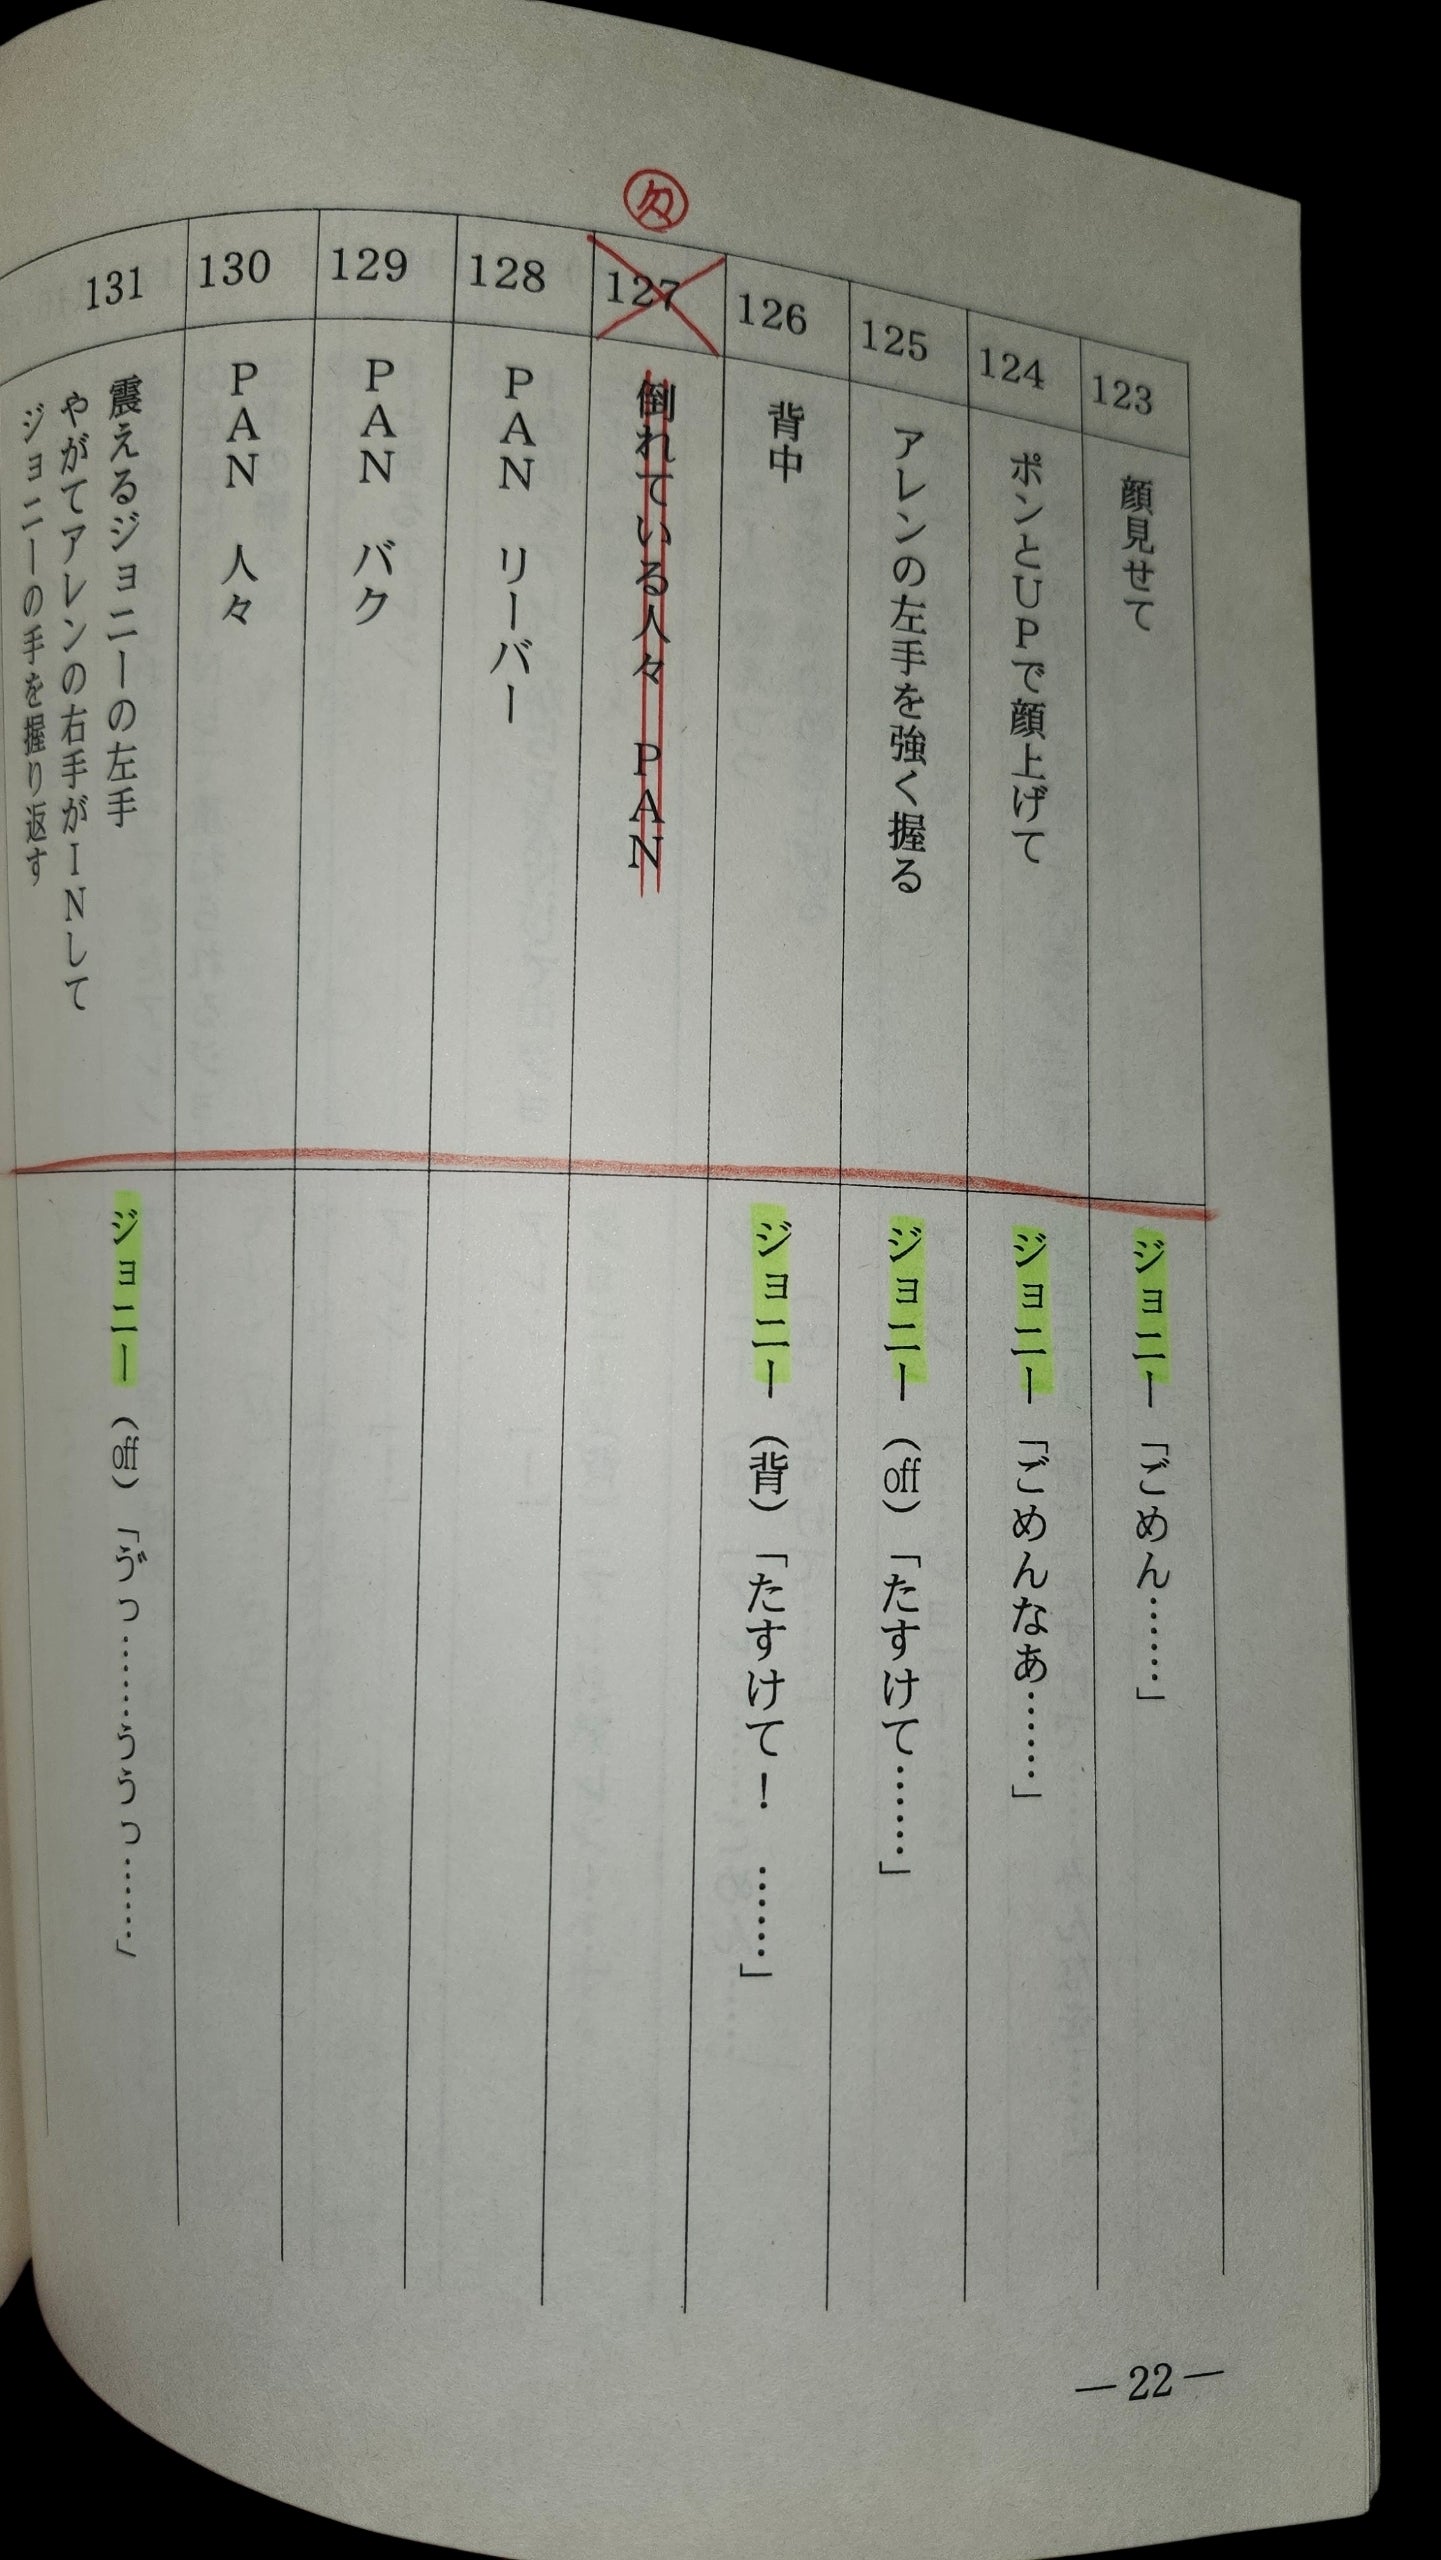 123
顔見せて
ジョニー「ごめん……」
124
ポンとUPで顔上げて
ジョニー「ごめんなあ……」
125
アレンの左手を強く握る
ジョニー（off）「たすけて……」
126
背中
ジョニー（背）「たすけて！　……」
127
倒れている人々　PAN
128
PAN　リーバー
129
PAN　バク
130
PAN　人々
131
震えるジョニーの左手
やがてアレンの右手がINして
ジョニーの手を握り返す
ジョニー（off）「ゔっ……ううっ……」
—22—